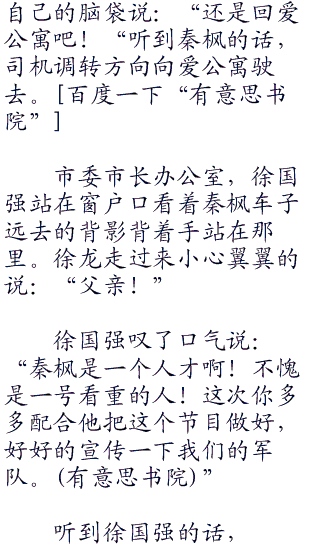 自己的脑袋说：“还是回爱
公寓吧！“听到秦枫的话，
司机调转方向向爱公寓驶
去。[百度一下“有意思书
院”]
市委市长办公室，徐国
强站在窗户口看着秦枫车子
远去的背影背着手站在那
里。徐龙走过来小心翼翼的
说：“父亲！”
徐国强叹了口气说：
“秦枫是一个人才啊！不愧
是一号看重的人！这次你多
多配合他把这个节目做好，
好好的宣传一下我们的军
队。(有意思书院)”
听到徐国强的话，